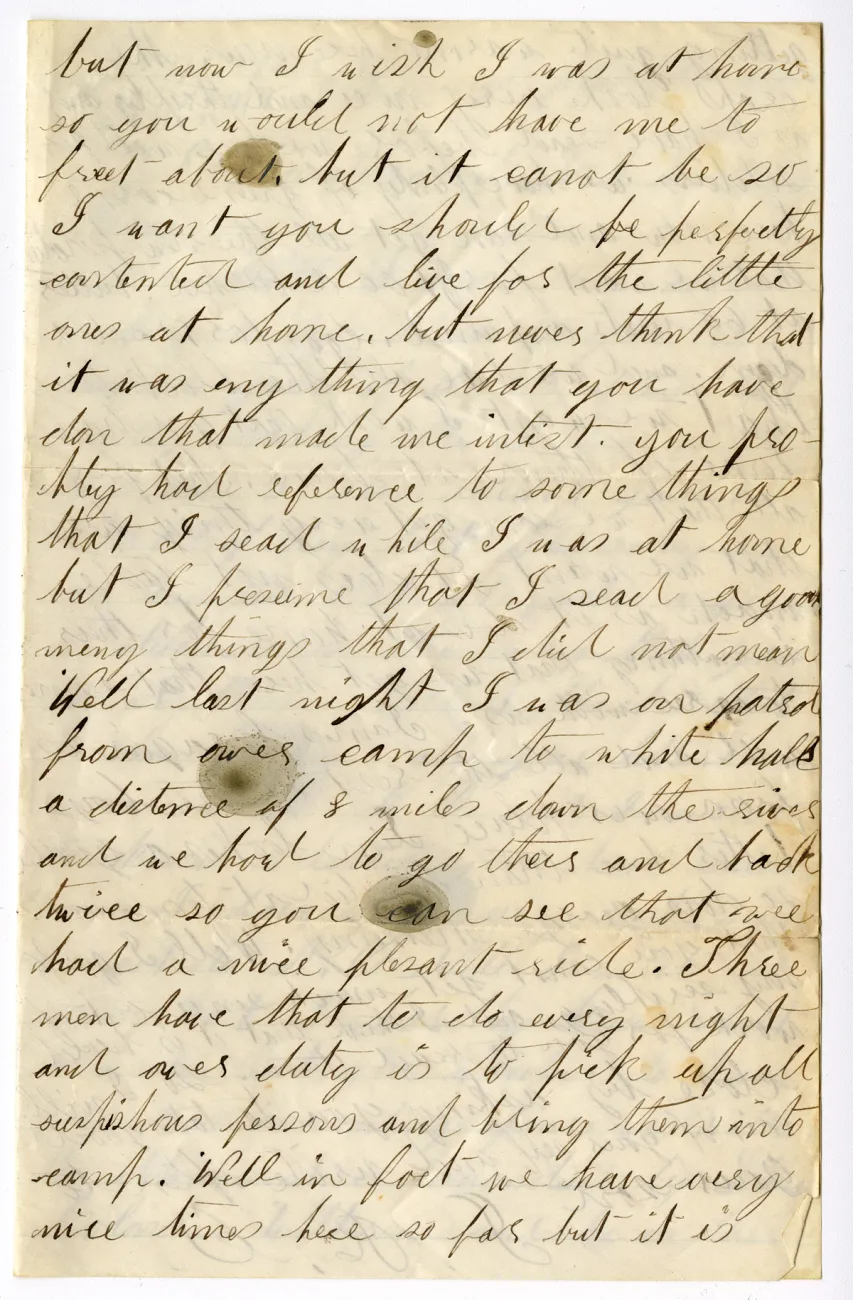 but now I wish I was at home
so you would not have me to
freet about. but it canot be so
I want you should be perfectly
contented and live for the little
ones at home. but never think that
it was eny thing that you have
don that made me inlist. you pro-
bley had reference to some things
that I sead while I was at home
but I preseime that I sead a good
meny things that I did not mean
Well last night I was on patrol
from ower camp to white hall
a distence of 8 miles down the river
and we had to go there and back
twice so you can see that wee
had a nice plesant ride. Three
men have that to do every night
and ower duty is to pick up all
suspishous persons and bring them into
camp. Well in fact we have very
nice times here so far but it is